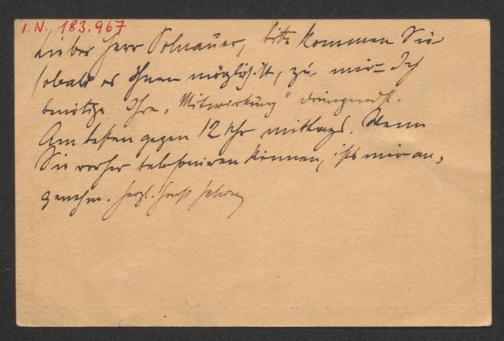 I.N. 183.967
Lieber Herr Polnauer, bitte kommen Sie
sobald es Ihnen möglich ist, zu mir. Ich
benötige Ihre „Mitwirkung" dringendst.
Am besten gegen 12 Uhr mittags. Wenn
Sie vorher telefonieren können, ists mir an-
genehm. Herzl.